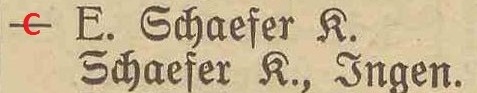 C E. Schaefer K.
Schaefer K., Ingen.